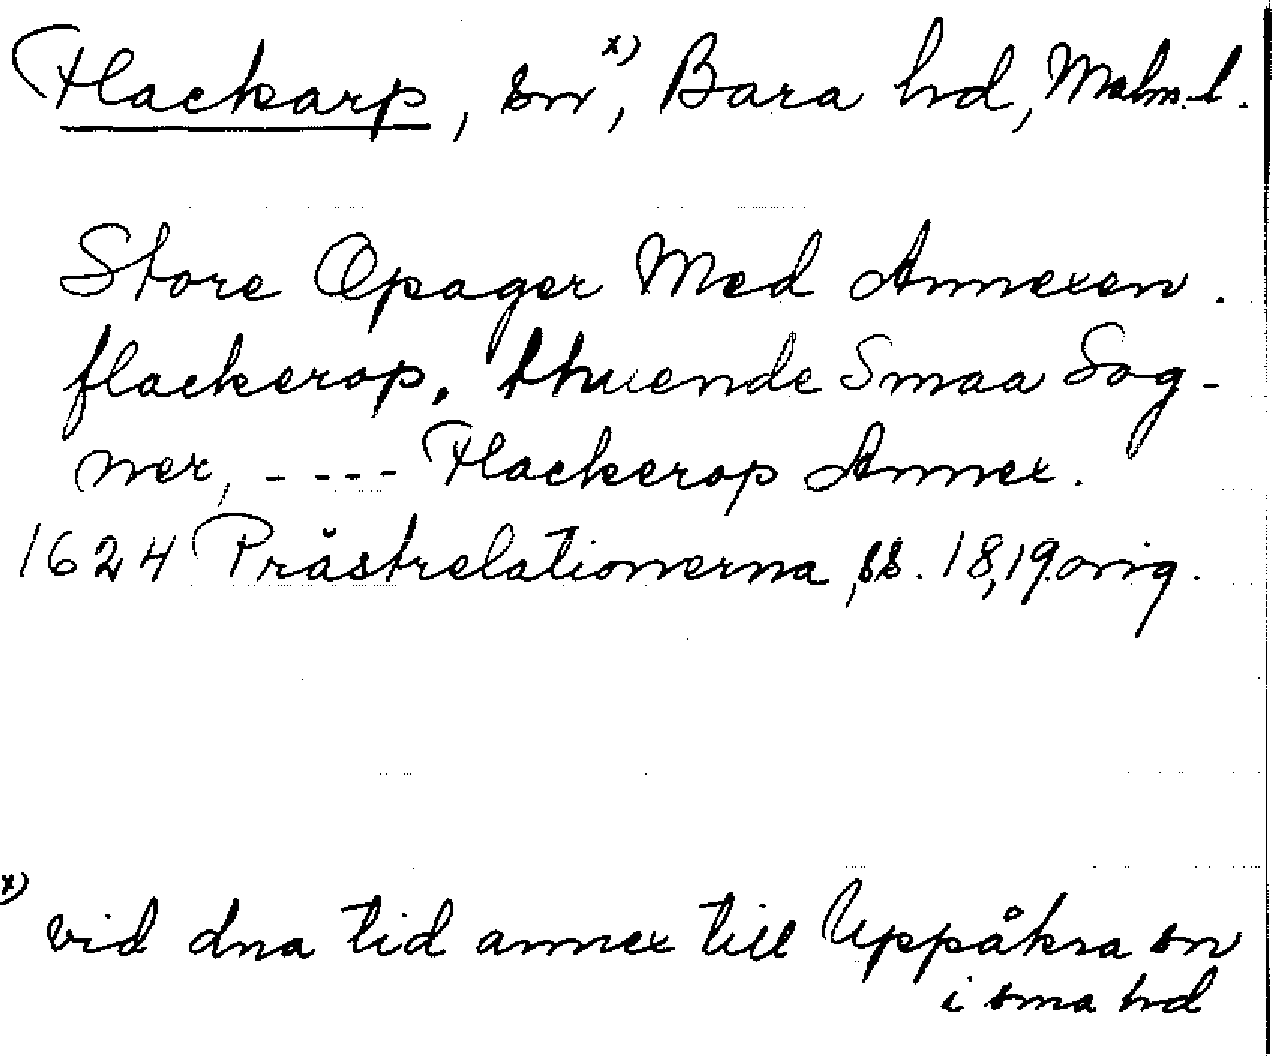 Flackarp, sn x), Bara hd, Malm.l.
Store Opager Med Annexen.
flackerop, thuende Smaa Sog-
ner, ---- Flackerop Annex.
1624 Prästrelationerna, ss. 18,19 orig.
x) vid dna tid annex till Uppåkra sn
i sma hd